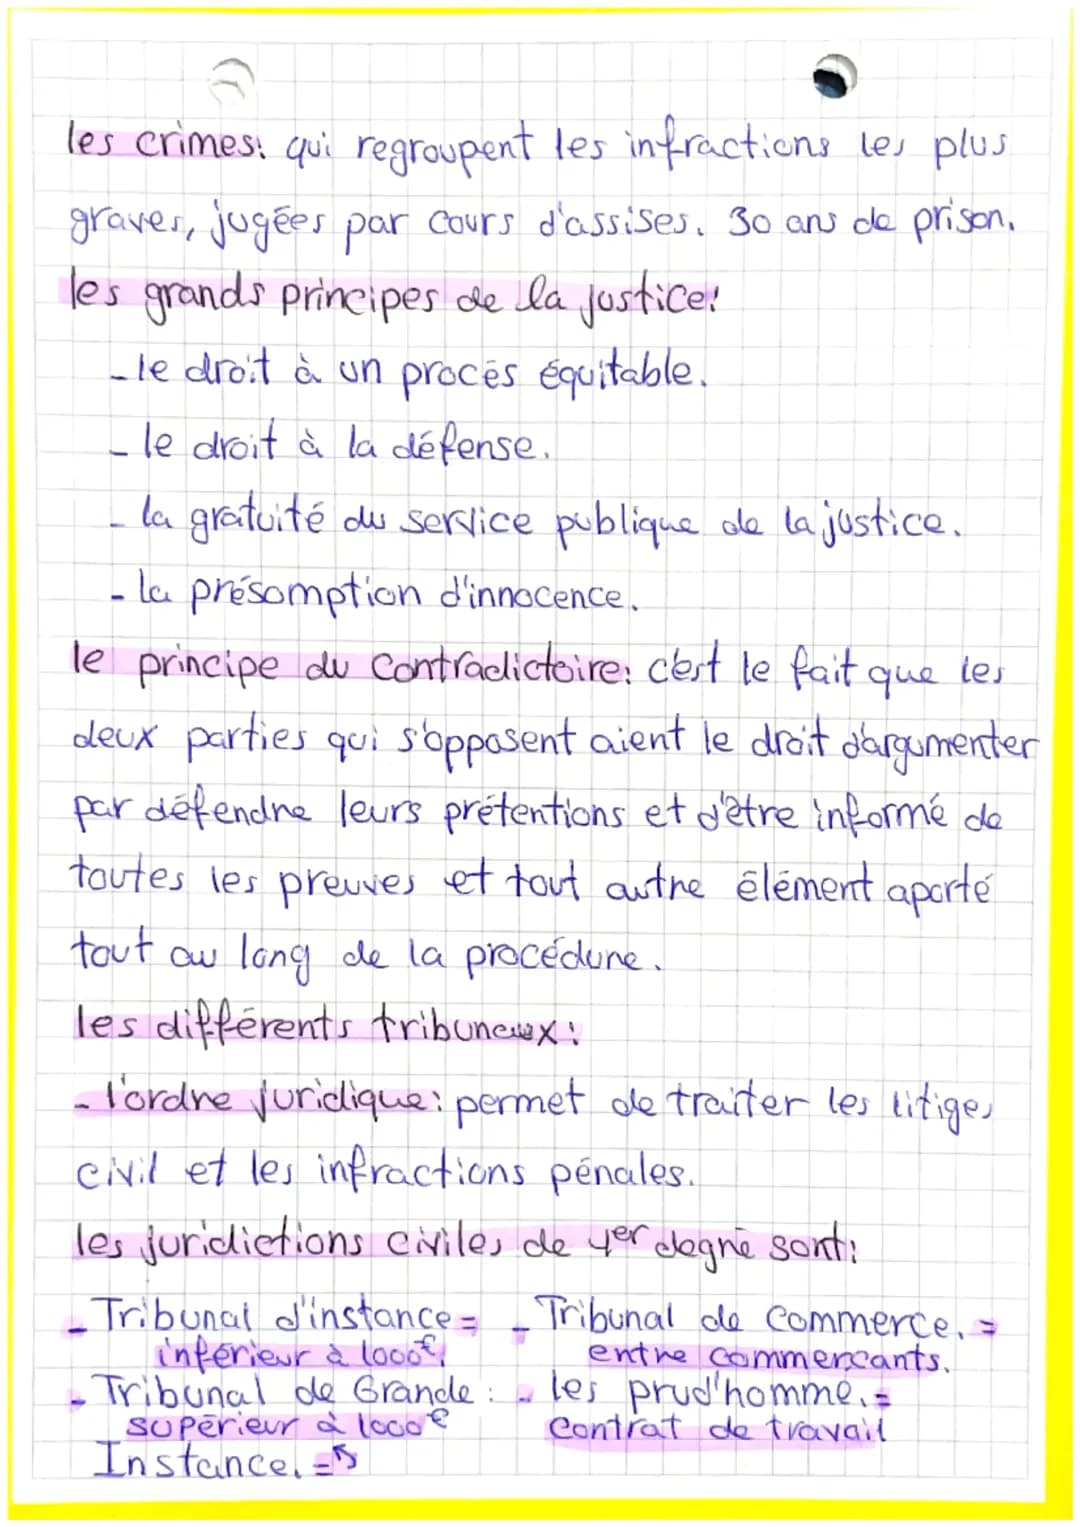 les crimes: qui regroupent les infractions les plus
graves, jugées par cours d'assises. 30 ans de prison.
les grands principes de la justice:
- le droit à un procès équitable.
- le droit à la défense.
- la gratuité du service publique de la justice.
- la présomption d'innocence.
le principe du contradictoire: c'est le fait que les
deux parties qui s'opposent aient le droit d'argumenter
par défendre leurs prétentions et d'être informé de
toutes les preuves et tout autre élément aporté
tout au long de la procédure.
les différents tribuneaux:
- l'ordre juridique: permet de traiter les litiges
civil et les infractions pénales.
les juridictions civiles de 1er degré sont:
- Tribunal d'instance = - Tribunal de Commerce. =
inférieur à 1000€. entre commerçants.
- Tribunal de Grande : - les prud'homme. =
supérieur à 1000€ contrat de travail
Instance. =